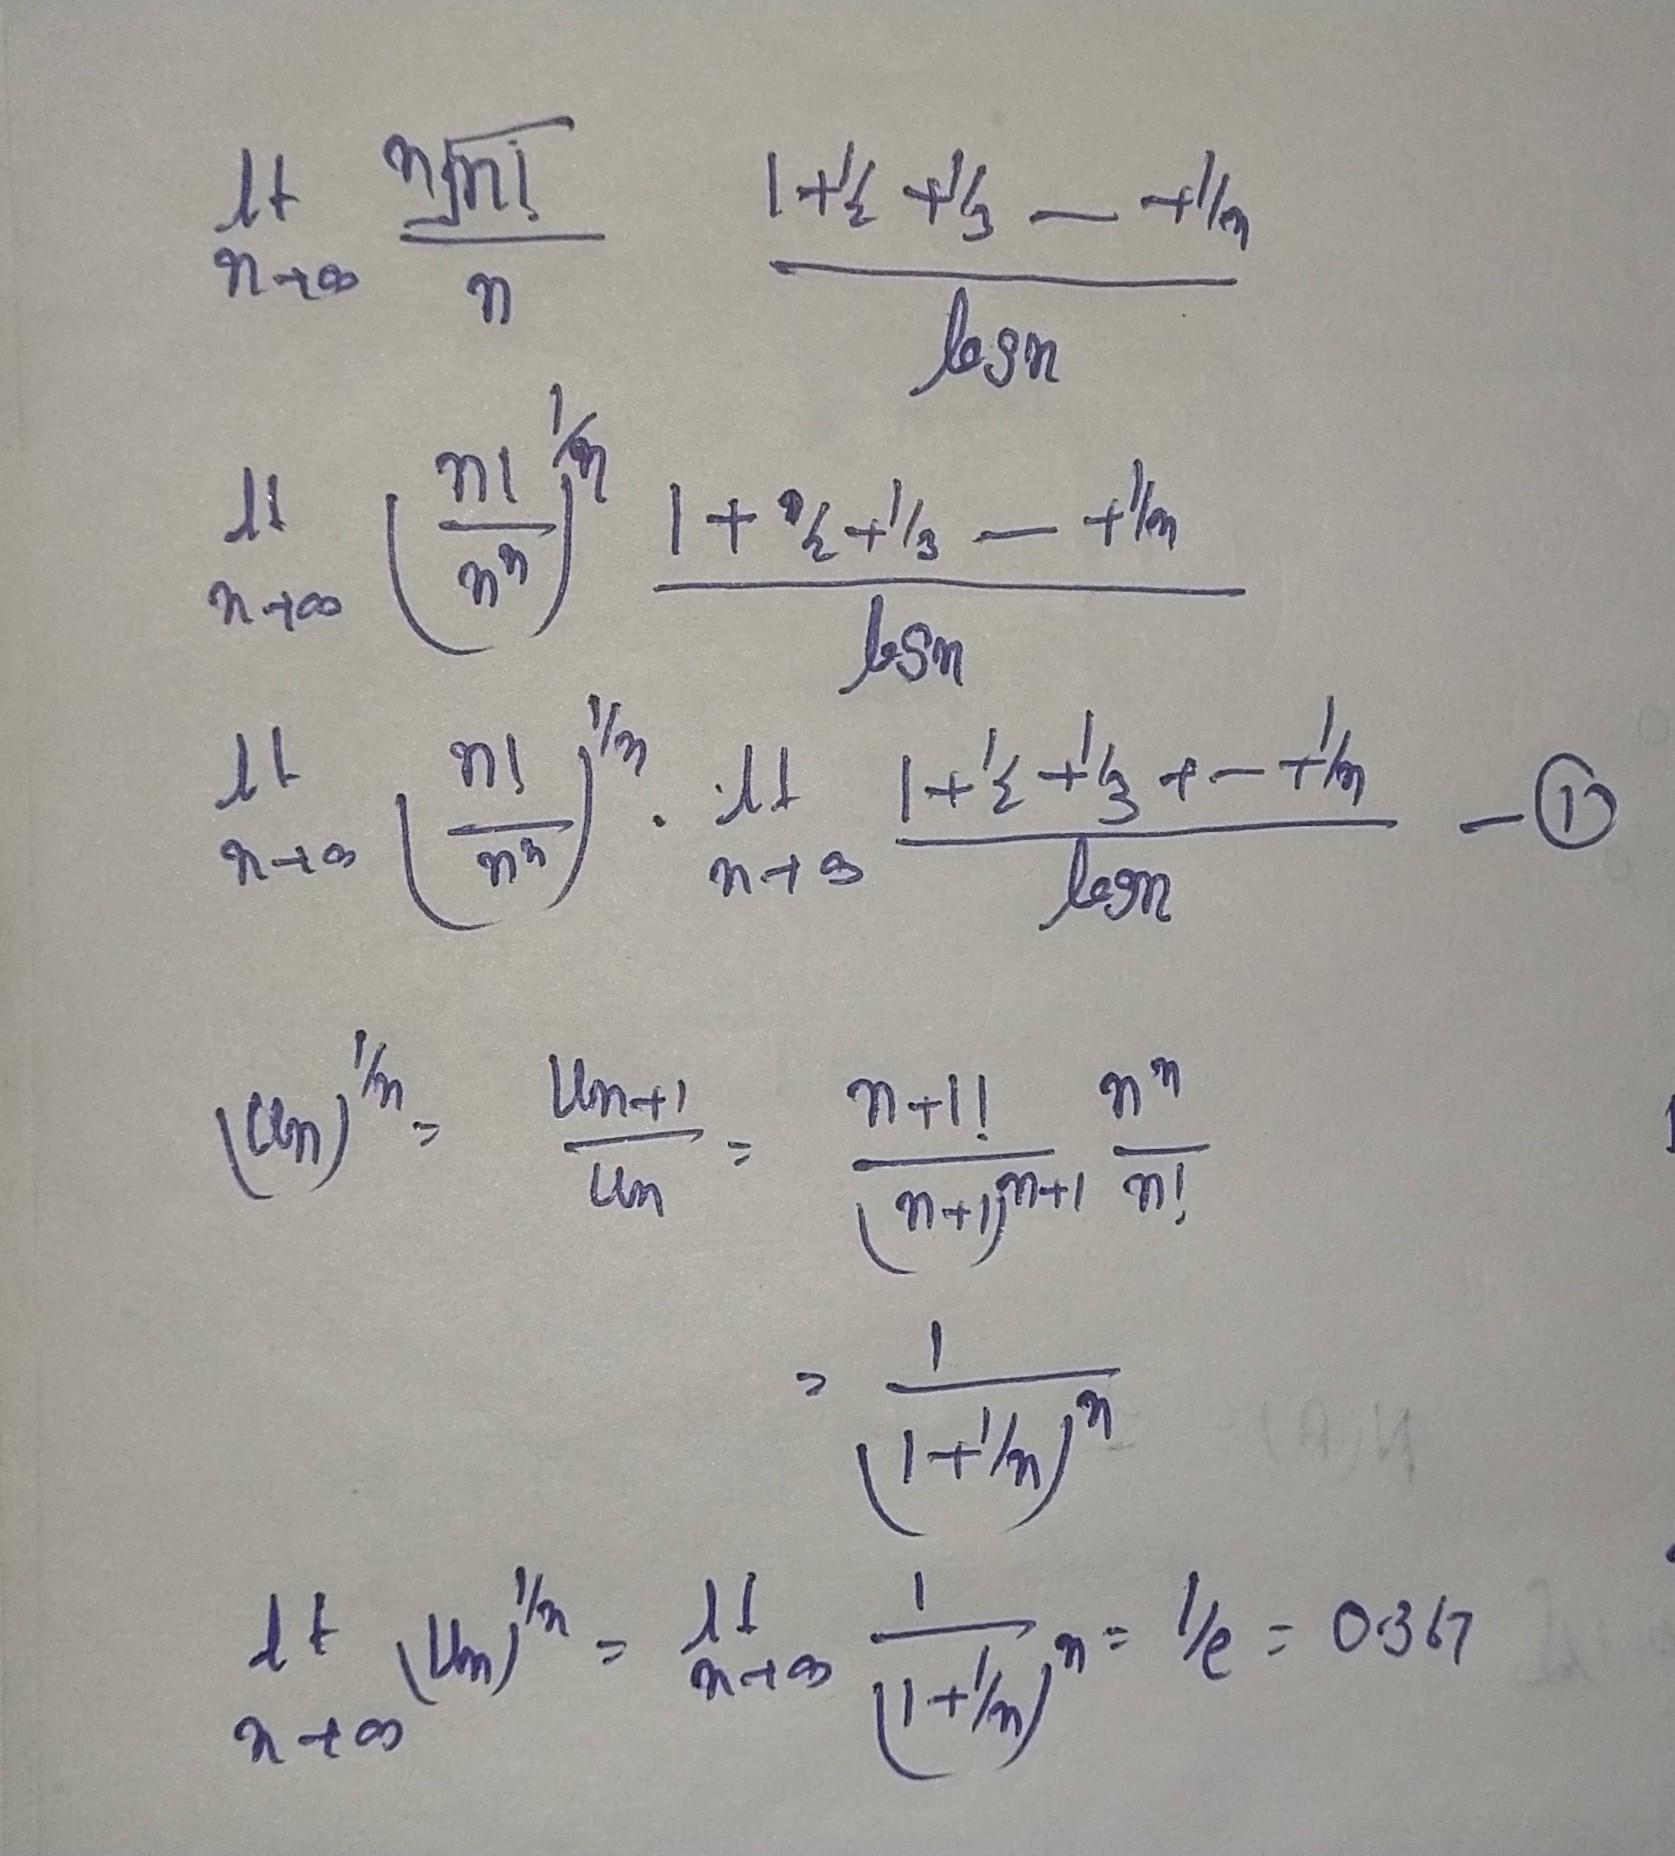 lt n→∞ ⁿ√n! / n   1+1/2+1/3 — +1/n / logn
lt n→∞ (n!/nⁿ)^1/n   1+1/2+1/3 — +1/n / logn
lt n→∞ (n!/nⁿ)^1/n . lt n→∞ 1+1/2+1/3+ — +1/n / logn — ①
(Un)^1/n = Un+1/Un = n+1!/(n+1)^n+1 nⁿ/n!
= 1/(1+1/n)^n
lt n→∞ (Un)^1/n = lt n→∞ 1/(1+1/n)^n = 1/e = 0.367